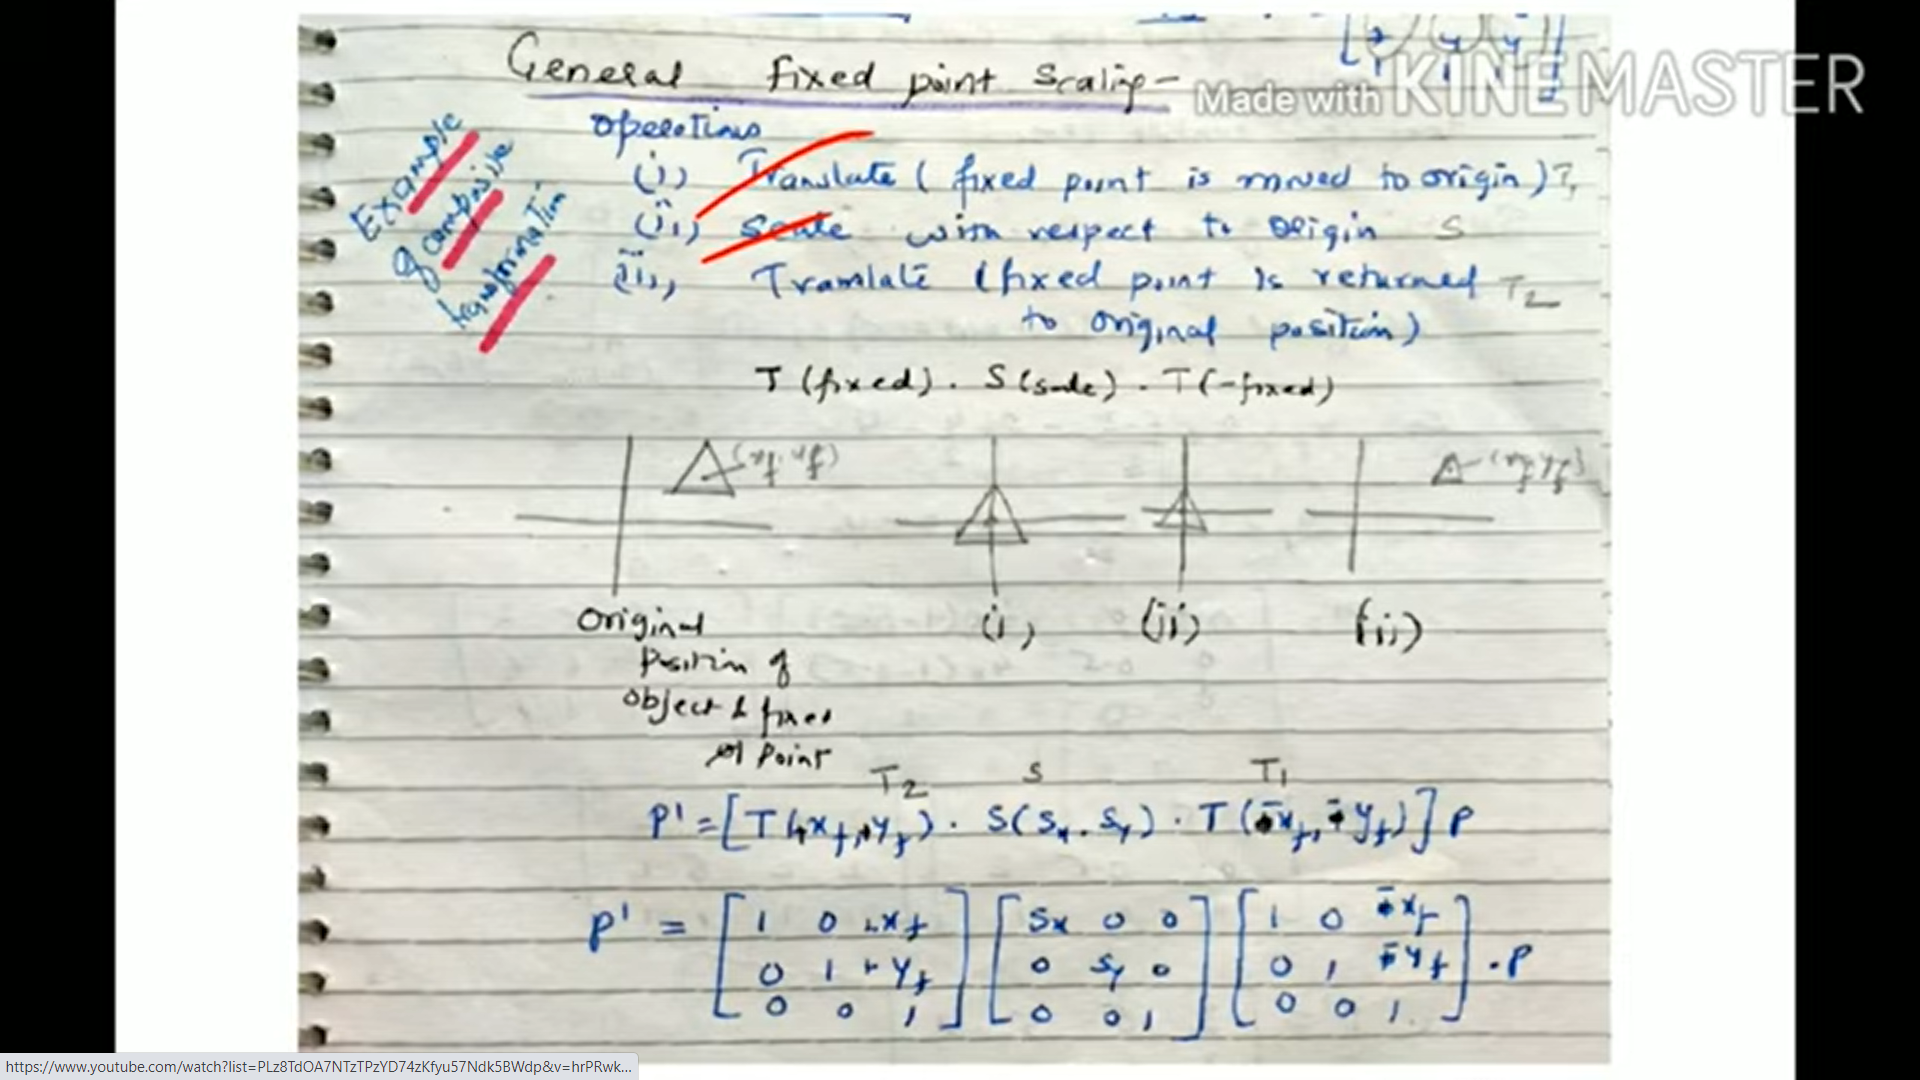 General fixed point Scaling -
Made with KINEMASTER
Example
of composite
transformation
operations
(i) Translate ( fixed point is moved to origin ) T1
(ii) Scale with respect to origin S
(iii) Translate (fixed point is returned T2
to original position)
T (fixed) . S (scale) . T (-fixed)
(xf, yf)
(xf yf)
Original
Position of
object & fixed
Point
(i)
(ii)
(iii)
T2 S T1
P' = [ T (+xf, +yf) . S( Sx . Sy ) . T (-xf, -yf) ] P
P' = [ 1 0 +xf ] [ Sx 0 0 ] [ 1 0 -xf ]
0 1 + yf 0 Sy 0 0 1 -yf . P
0 0 1 0 0 1 0 0 1
https://www.youtube.com/watch?list=PLz8TdOA7NTzTPzYD74zKfyu57Ndk5BWdp&v=hrPRwk...